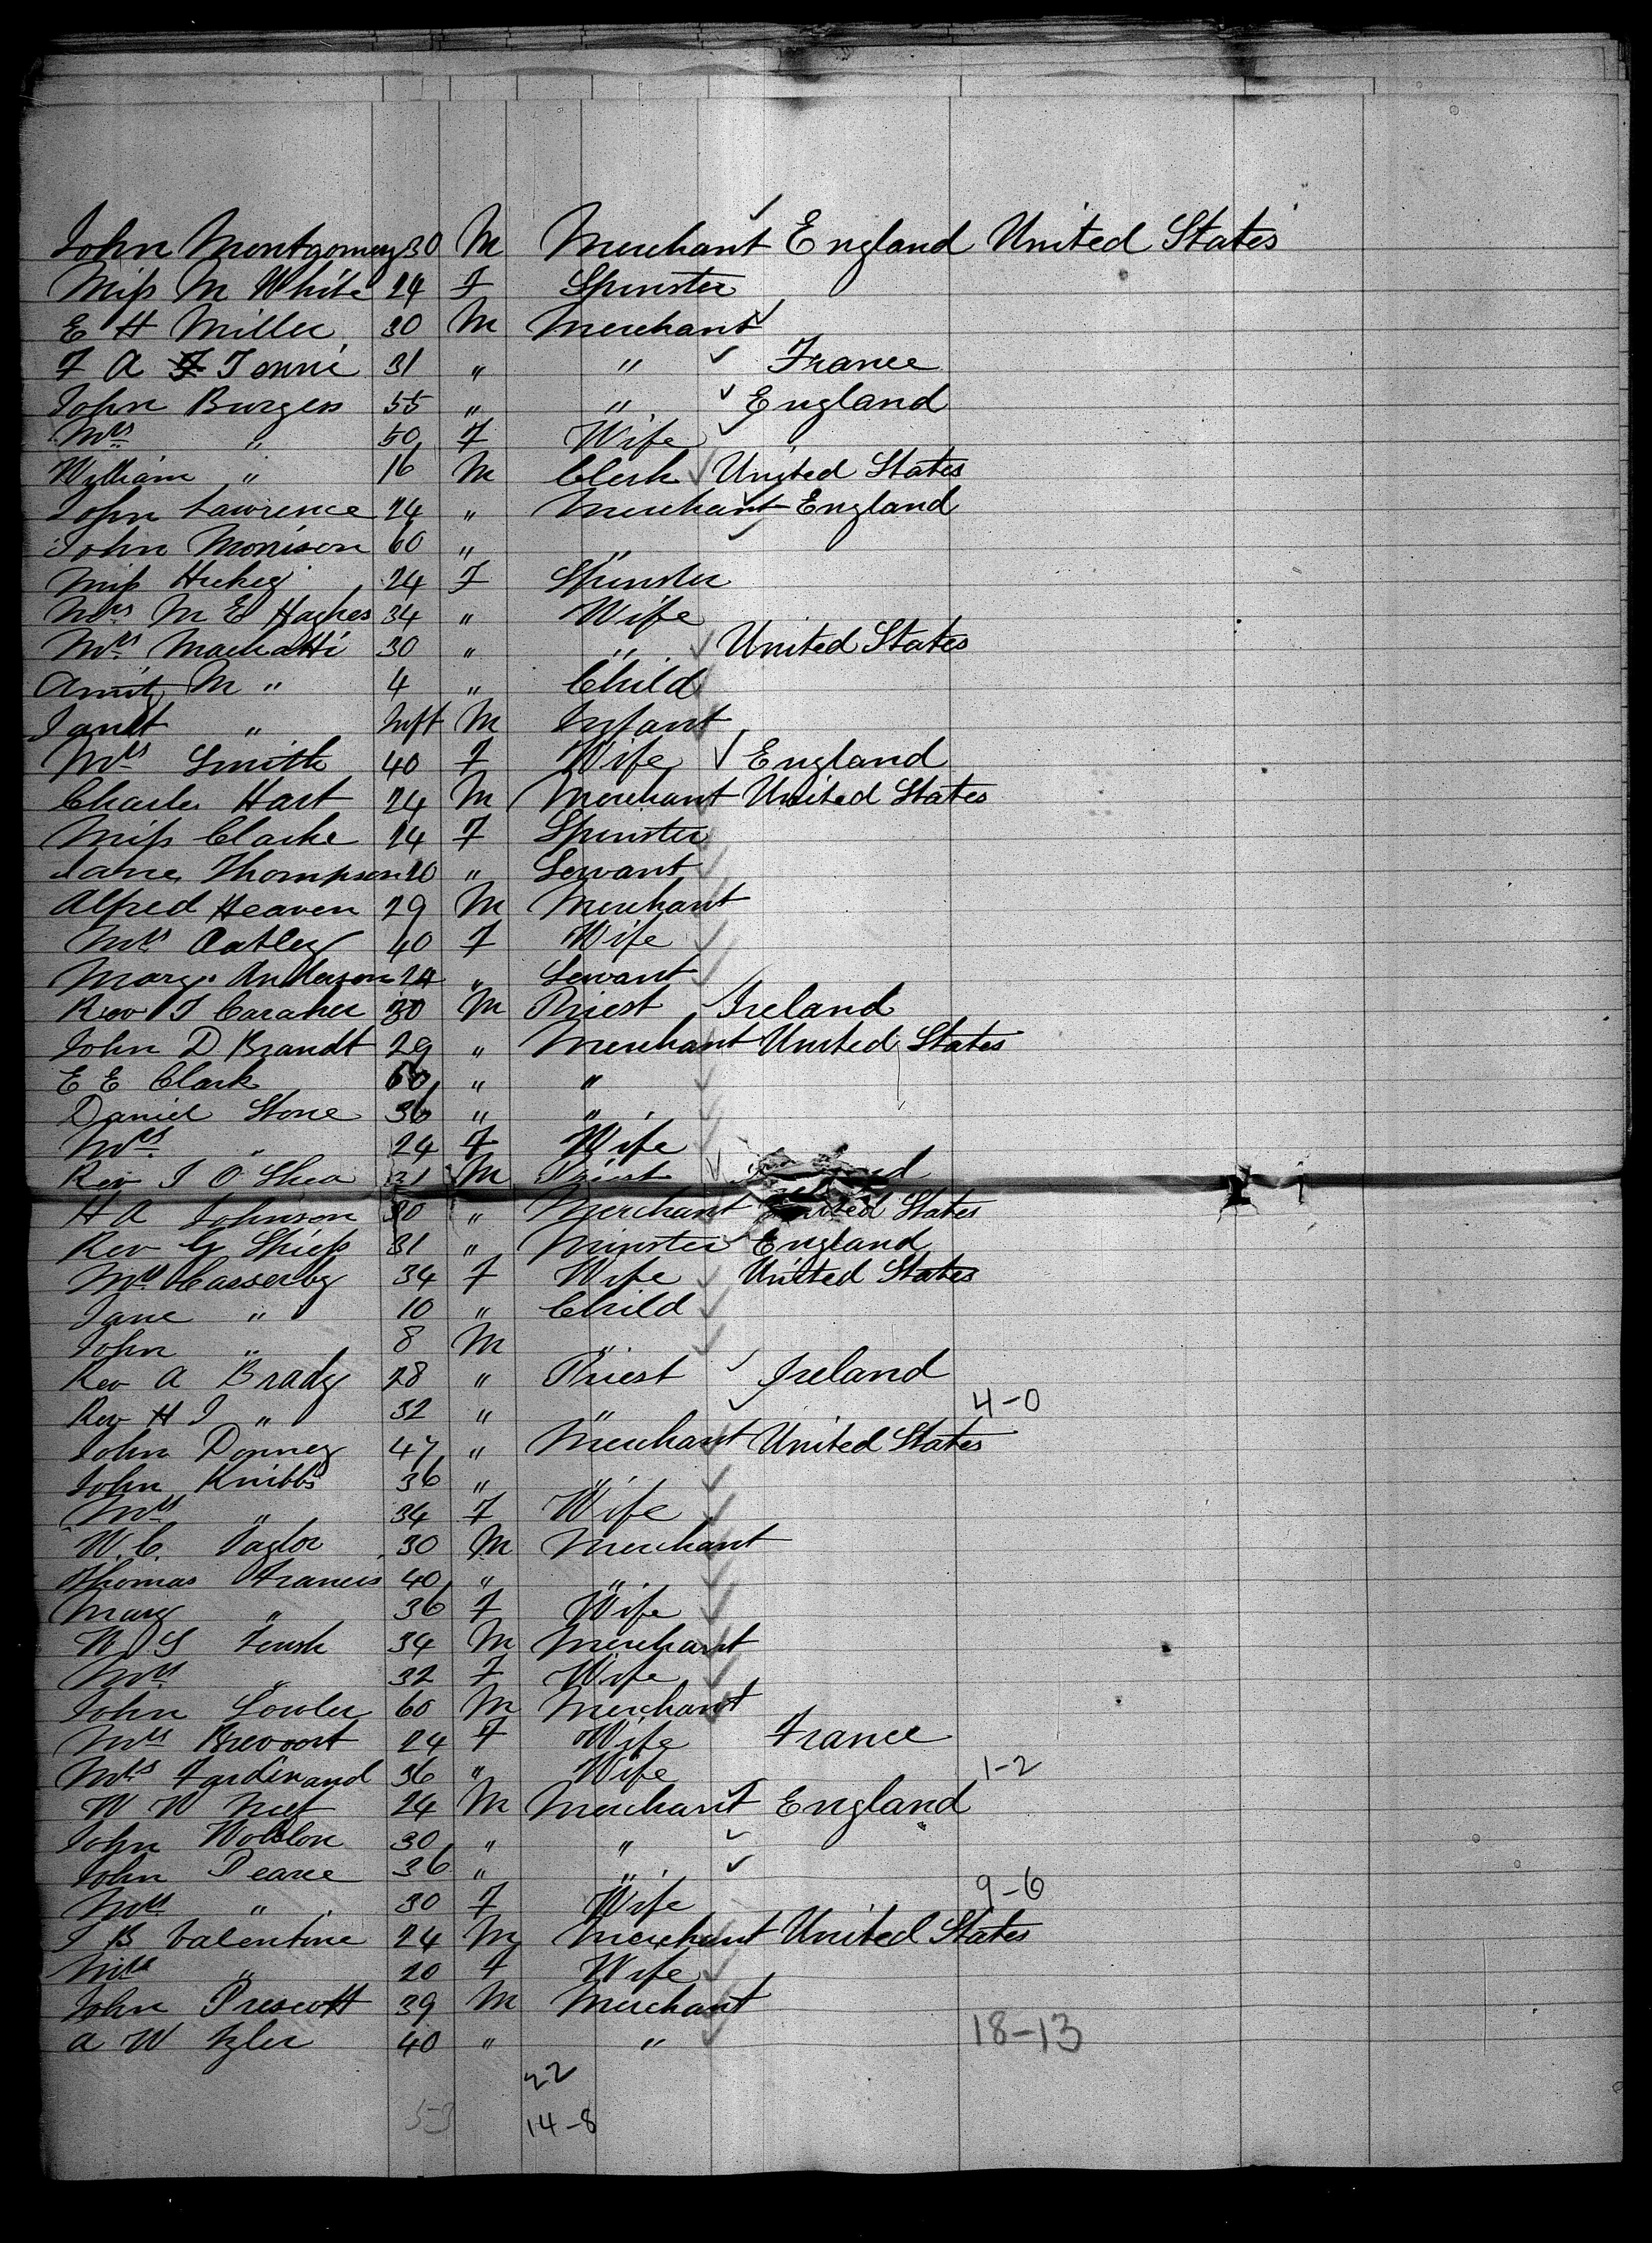 John Montgomery 30 M Merchant England United States
Miss M White 24 F Spinster
E H Miller 30 M Merchant
F A Jenni 31 " " France
John Burgess 55 " " England
Mrs " 50 F Wife
William " 16 M Clerk United States
John Lawrence 24 " Merchant England
John Morrison 60 " "
Miss Hickey 24 F Spinster
Mrs M E Hughes 34 " Wife
Mrs 30 " " United States
M " 4 " Child
Janet " Inft M Infant
Mrs Smith 40 F Wife England
Charles Hart 24 M Merchant United States
Miss Clarke 24 F Spinster
Jane Thompson 20 " Servant
Alfred Heaven 29 M Merchant
Mrs Oatley 40 F Wife
Mary Anderson 24 " Servant
Rev J Caraher 30 M Priest Ireland
John D Brandt 29 " Merchant United States
E E Clark 60 " "
Daniel Stone 36 " "
Mrs " 24 F Wife
Rev J O Shea 31 M Priest
H A Johnson 30 " Merchant United States
Rev G 31 " Minister England
Mrs Casserly 34 F Wife United States
Jane " 10 " Child
John " 8 M "
Rev A Brady 28 " Priest Ireland
Rev H J " 32 " " 4-0
John Donney 47 " Merchant United States
John Knibbs 36 " "
Mrs " 34 F Wife
W. C. Taylor 30 M Merchant
Thomas Francis 40 " "
Mary " 36 F Wife
W S 34 M Merchant
Mrs " 32 F Wife
John Lowler 60 M Merchant
Mrs Brevoort 24 F Wife France
Mrs Fardinand 36 " Wife 1-2
W W Neef 24 M Merchant England
John 30 " "
John Pearce 36 " "
Mrs " 30 F Wife 9-6
J B Valentine 24 M Merchant United States
Mrs " 20 F Wife
John Prescott 39 M Merchant
A W 40 " " 18-13
22
53 14-8